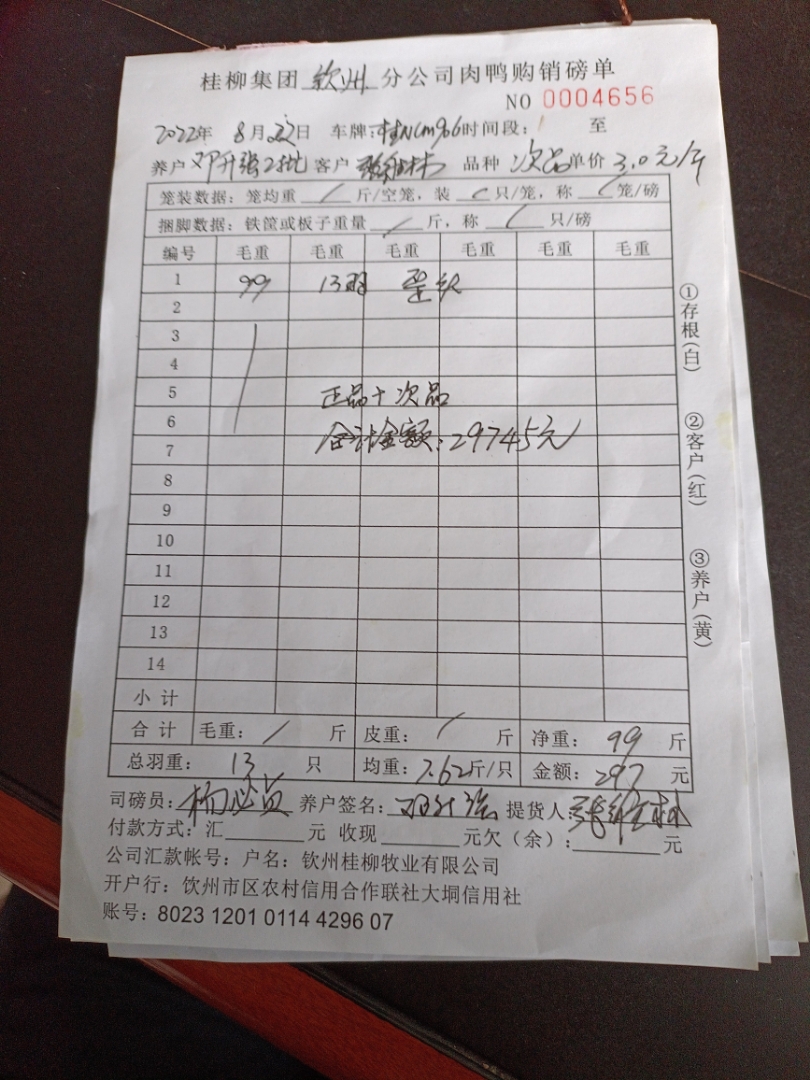 桂柳集团 钦州 分公司肉鸭购销磅单
NO 0004656
2022年 8月22日 车牌:桂NCM966时间段: 至
养户 邓升强2批 客户 张维林 品种 次品 单价 3.0元/斤
笼装数据:笼均重 / 斤/空笼,装 / 只/笼,称 / 笼/磅
捆脚数据:铁筐或板子重量 / 斤,称 / 只/磅
编号 毛重 毛重 毛重 毛重 毛重 毛重
1 99 13羽
2
3
4
5 正品+次品
6
合计金额:29745元
7
8
9
10
11
12
13
14
小计
合计 毛重: / 斤 皮重: / 斤 净重: 99 斤
总羽重: 13 只 均重:7.62斤/只 金额:297 元
司磅员: 养户签名:邓升强 提货人:张维林
付款方式:汇______元 收现______元欠(余):______元
公司汇款帐号:户名:钦州桂柳牧业有限公司
开户行:饮州市区农村信用合作联社大垌信用社
账号:8023 1201 0114 4296 07
①存根(白)
②客户(红)
③养户(黄)